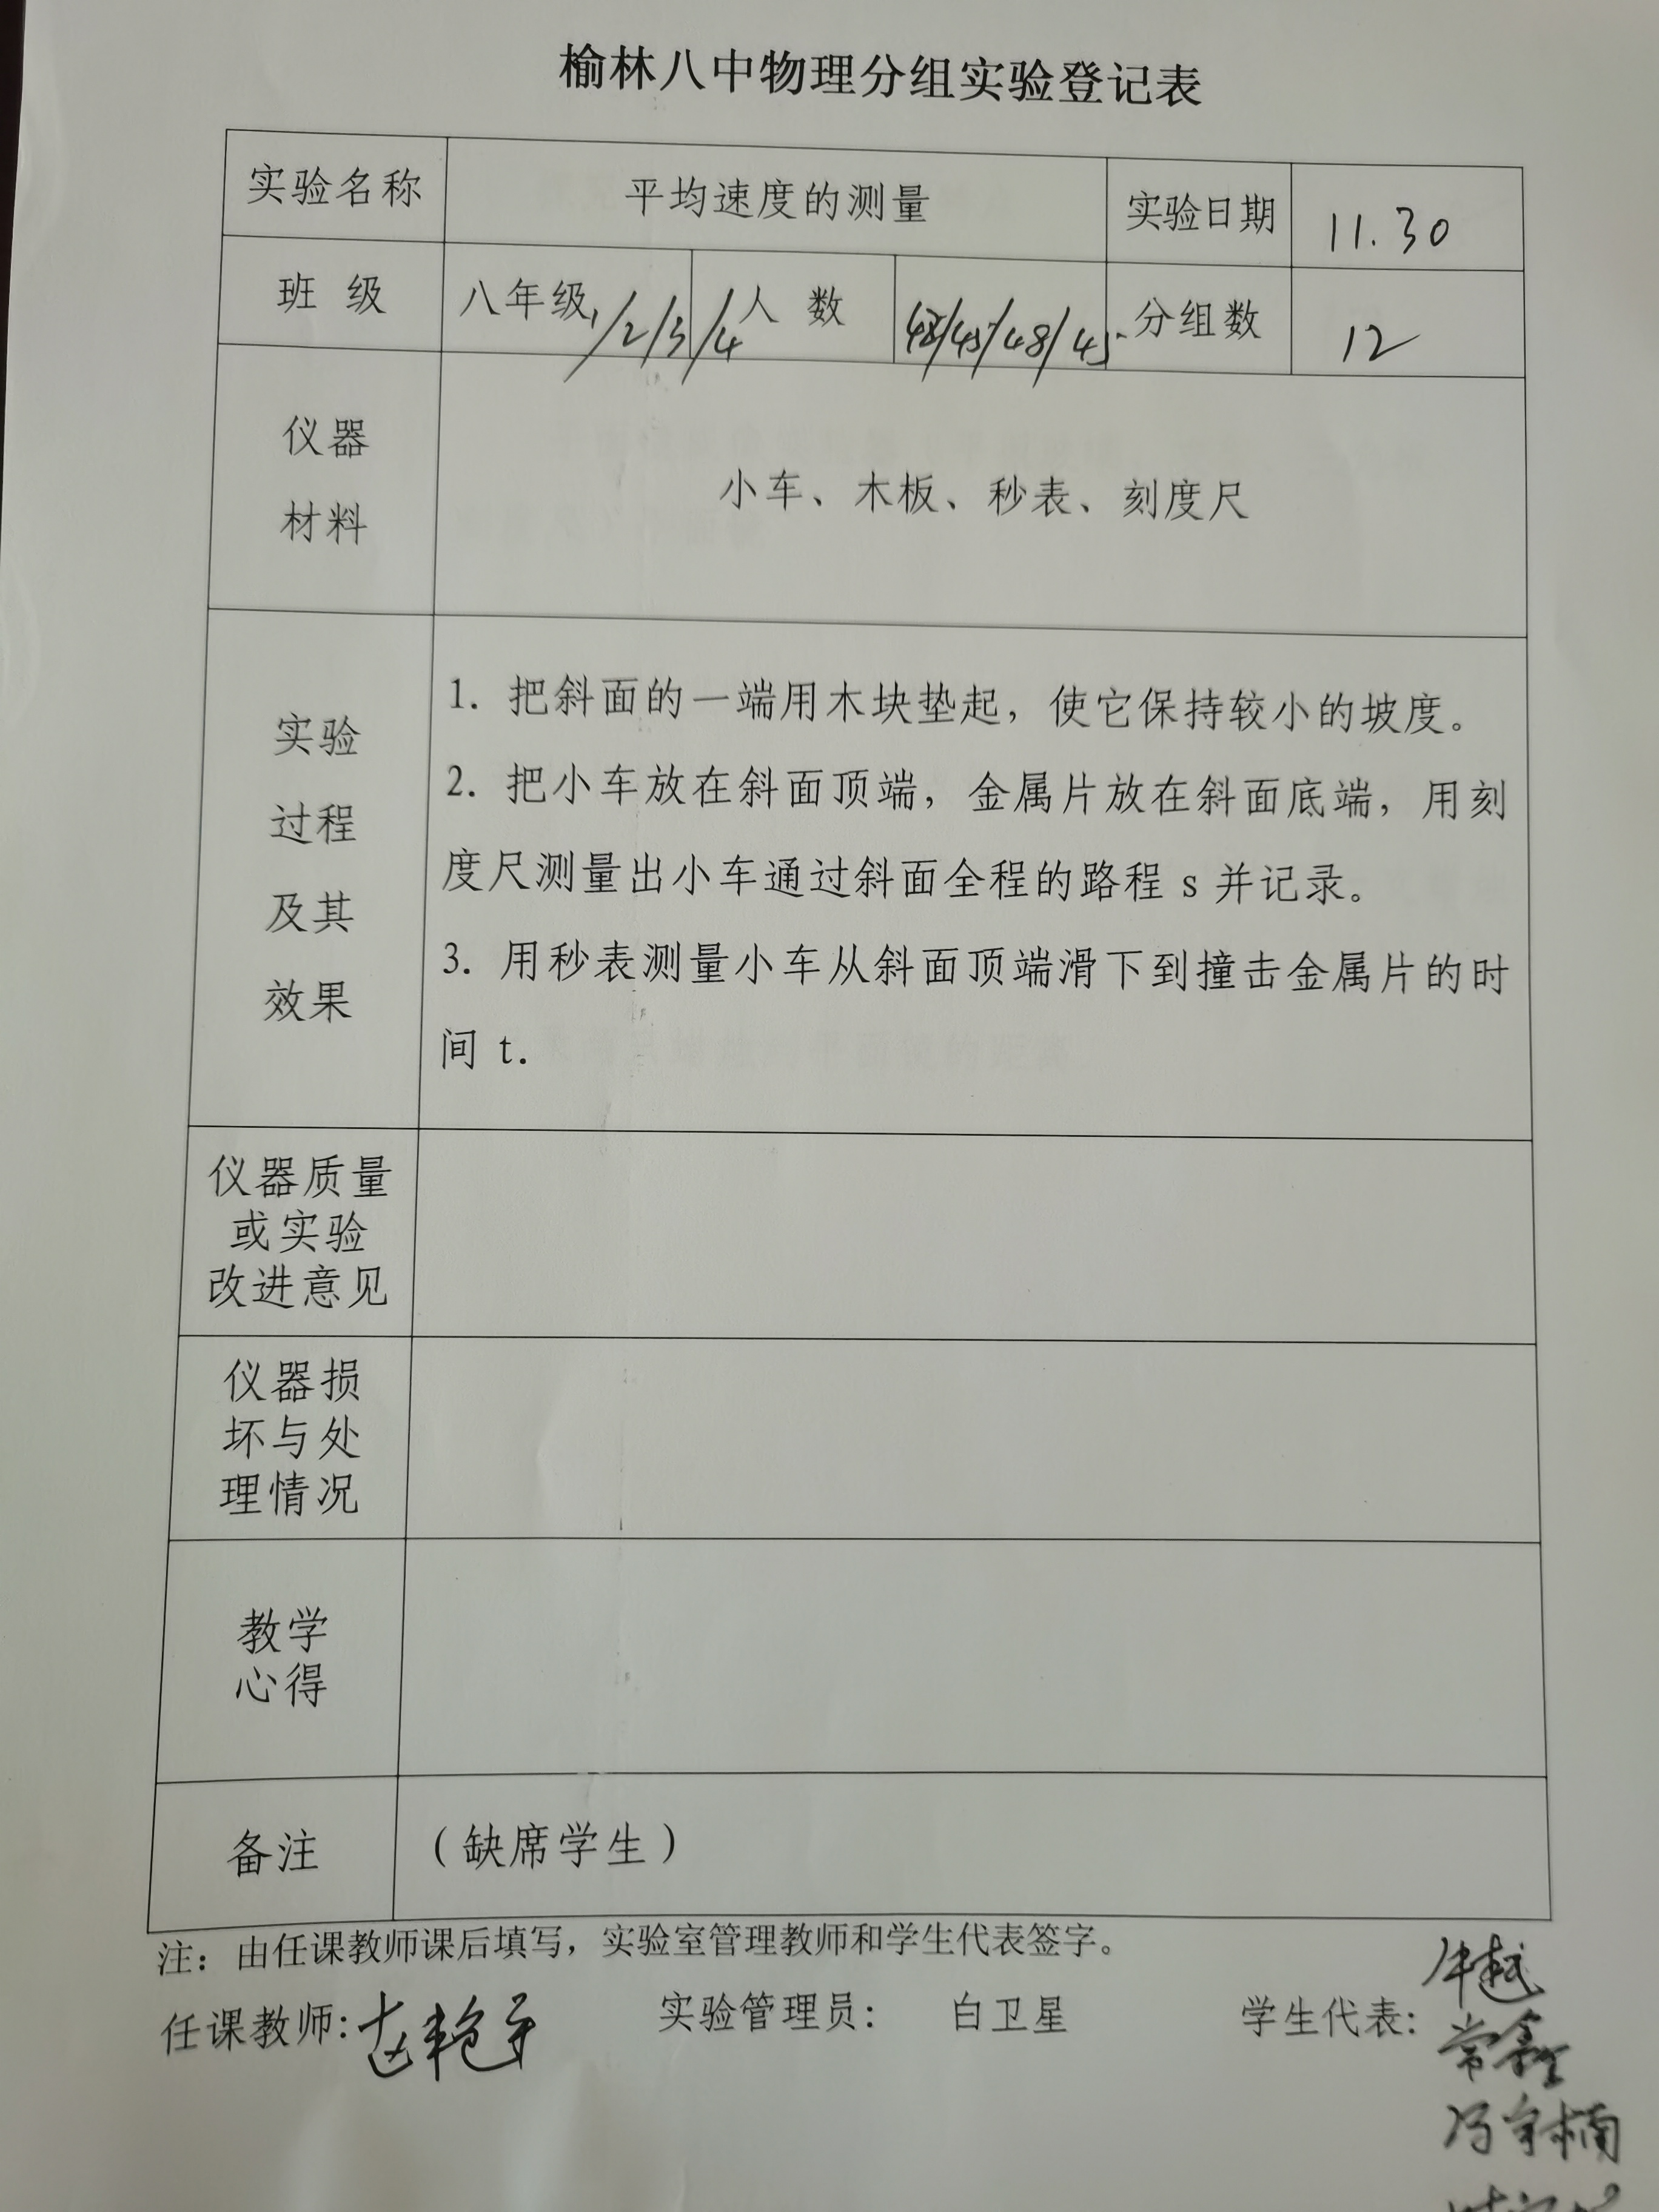 榆林八中物理分组实验登记表
实验名称 平均速度的测量 实验日期 11.30
班 级 八年级1/2/3/4 人 数 48/45/48/45 分组数 12
仪器
材料
小车、木板、秒表、刻度尺
实验
过程
及其
效果
1. 把斜面的一端用木块垫起，使它保持较小的坡度。
2. 把小车放在斜面顶端，金属片放在斜面底端，用刻
度尺测量出小车通过斜面全程的路程 s 并记录。
3. 用秒表测量小车从斜面顶端滑下到撞击金属片的时
间 t.
仪器质量
或实验
改进意见
仪器损
坏与处
理情况
教学
心得
备注 （缺席学生）
注：由任课教师课后填写，实验室管理教师和学生代表签字。
任课教师: 实验管理员： 白卫星 学生代表:
常鑫